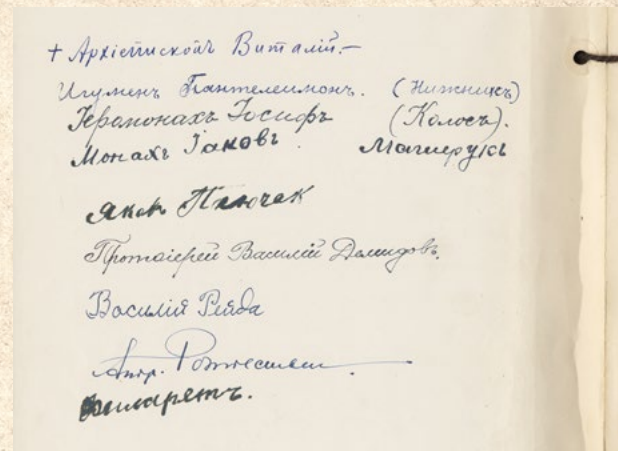 + Архіепископъ Виталій.—
Игуменъ Пантелеимонъ. (Нижникъ)
Іеромонахъ Іосифъ (Колосъ).
Монахъ Іаковъ. Магерукъ
Яковъ Ключек
Протоіерей Василій Демидовъ.
Василій Рейда
Филаретъ.